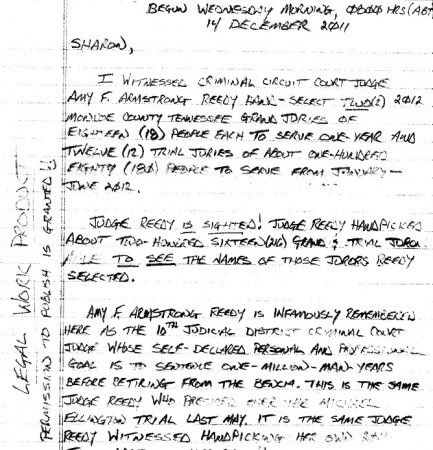 BEGUN WEDNESDAY MORNING, 0800 HRS (ABT)
14 DECEMBER 2011
SHARON,
I WITNESSED CRIMINAL CIRCUIT COURT JUDGE
AMY F. ARMSTRONG REEDY HAND-SELECT TWO(2) 2012
MONROE COUNTY TENNESSEE GRAND JURIES OF
EIGHTEEN (18) PEOPLE EACH TO SERVE ONE-YEAR AND
TWELVE (12) TRIAL JURIES OF ABOUT ONE-HUNDRED
EIGHTY (180) PEOPLE TO SERVE FROM JANUARY-
JUNE 2012.
JUDGE REEDY IS SIGHTED! JUDGE REEDY HANDPICKED
ABOUT TWO-HUNDRED SIXTEEN(216) GRAND & TRIAL
TO SEE THE NAMES OF THOSE JURORS REEDY
SELECTED.
AMY F. ARMSTRONG REEDY IS INFAMOUSLY REMEMBERED
HERE AS THE 10TH JUDICIAL DISTRICT CRIMINAL COURT
JUDGE WHOSE SELF-DECLARED PERSONAL AND PROFESSIONAL
GOAL IS TO SENTENCE ONE-MILLION-MAN-YEARS
BEFORE RETIRING FROM THE BENCH. THIS IS THE SAME
JUDGE REEDY WHO PRESIDED OVER MICHAEL
ELLINGTON TRIAL LAST MAY. IT IS THE SAME JUDGE
REEDY WITNESSED HANDPICKING HER OWN
LEGAL WORK PRODUCT
PERMISSION TO PUBLISH IS GRANTED!!